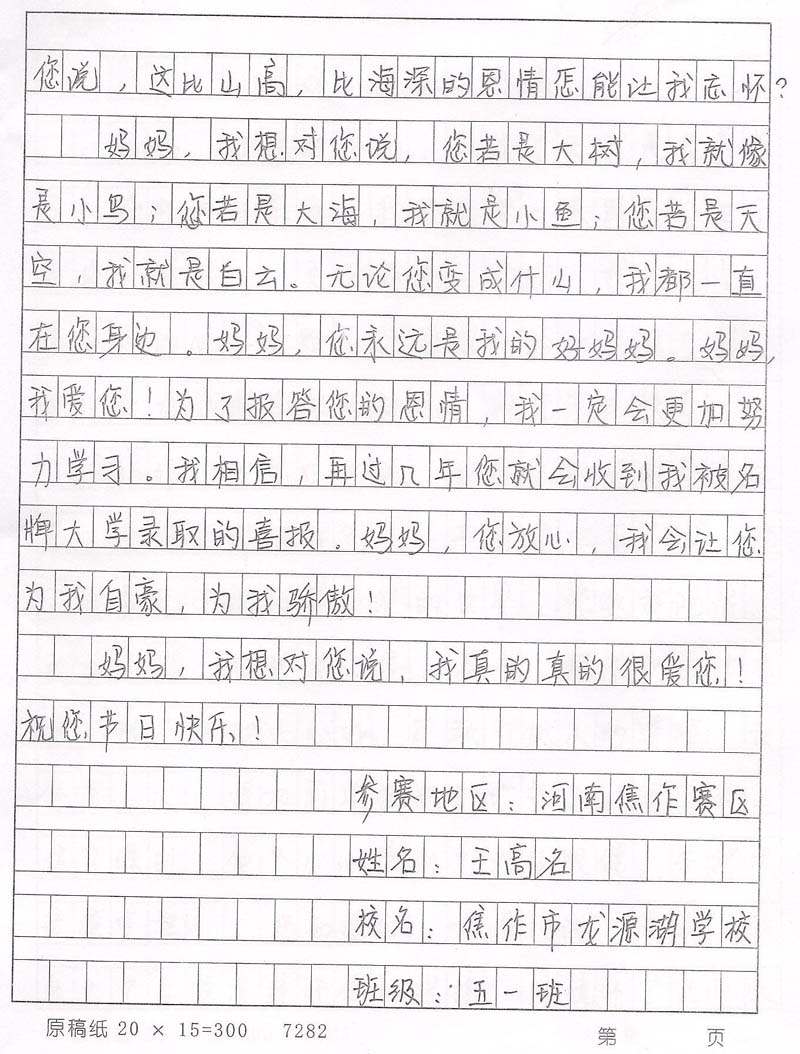 您说，这比山高，比海深的恩情怎能让我忘怀？
妈妈，我想对您说，您若是大树，我就像
是小鸟；您若是大海，我就是小鱼；您若是天
空，我就是白云。无论您变成什么，我都一直
在您身边。妈妈，您永远是我的好妈妈。妈妈，
我爱您！为了报答您的恩情，我一定会更加努
力学习。我相信，再过几年您就会收到我被名
牌大学录取的喜报。妈妈，您放心，我会让您
为我自豪，为我骄傲！
妈妈，我想对您说，我真的真的很爱您！
祝您节日快乐！
参赛地区：河南焦作赛区
姓名：王高名
校名：焦作市龙源湖学校
班级：五一班
原稿纸 20 × 15=300 7282 第 页